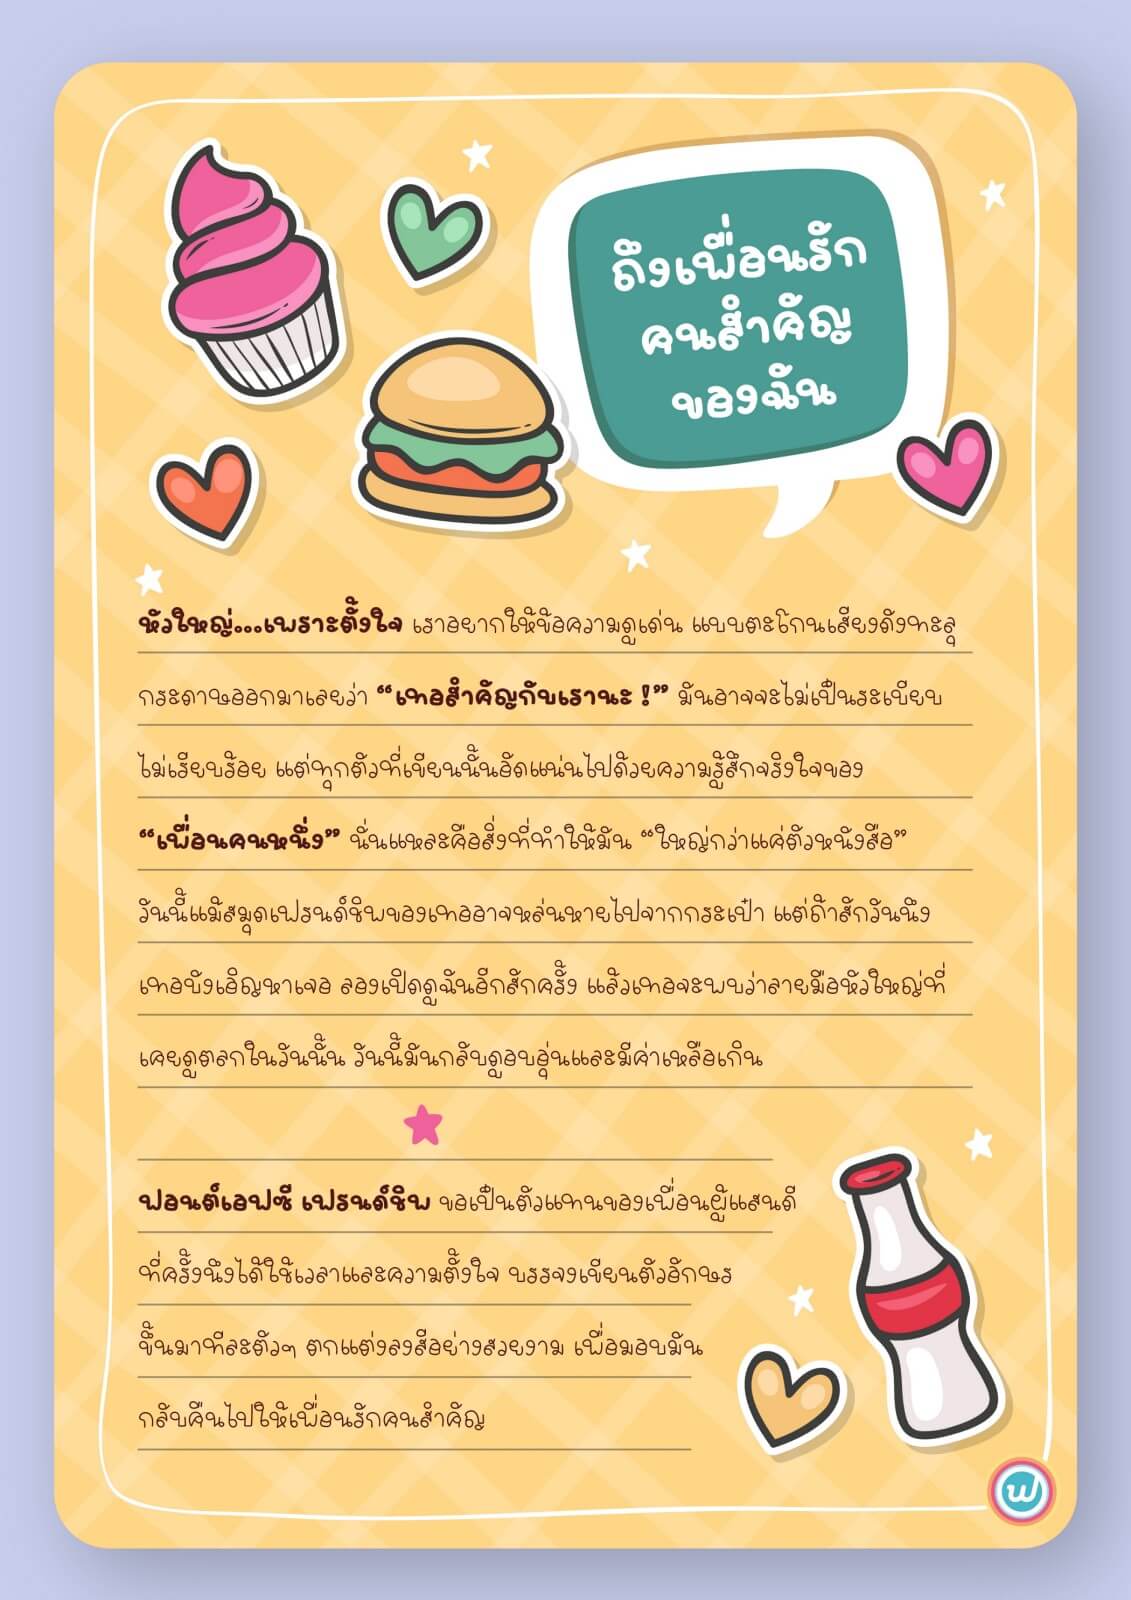 ถึงเพื่อนรัก
คนสำคัญ
ของฉัน
หัวใหญ่...เพราะตั้งใจ เราอยากให้ข้อความดูเด่น แบบตะโกนเสียงดังทะลุ
กระดาษออกมาเลยว่า “เทอสำคัญกับเรานะ !” มันอาจจะไม่เป็นระเบียบ
ไม่เรียบร้อย แต่ทุกตัวที่เขียนนั้นอัดแน่นไปด้วยความรู้สึกจริงใจของ
“เพื่อนคนหนึ่ง” นั่นแหละคือสิ่งที่ทำให้มัน “ใหญ่กว่าแค่ตัวหนังสือ”
วันนี้แม้สมุดเฟรนด์ชิพของเทออาจหล่นหายไปจากกระเป๋า แต่ถ้าสักวันนึง
เทอบังเอิญหาเจอ ลองเปิดดูฉันอีกสักครั้ง แล้วเทอจะพบว่าลายมือหัวใหญ่ที่
เคยดูตลกในวันนั้น วันนี้มันกลับดูอบอุ่นและมีค่าเหลือเกิน
ฟอนต์เอฟซี เฟรนด์ชิพ ขอเป็นตัวแทนของเพื่อนผู้แสนดี
ที่ครั้งนึงได้ใช้เวลาและความตั้งใจ บรรจงเขียนตัวอักษร
ขึ้นมาทีละตัวๆ ตกแต่งลงสีอย่างสวยงาม เพื่อมอบมัน
กลับคืนไปให้เพื่อนรักคนสำคัญ
ฟ